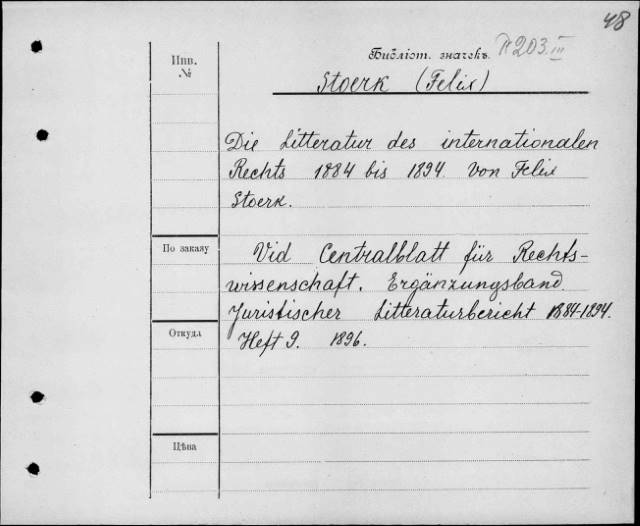 48
Библіот. значекъ. П 203. III
Инв.
№
Stoerk (Felix)
Die Litteratur des internationalen
Rechts 1884 bis 1894 von Felix
Stoerk.
По заказу
Vid Centralblatt für Rechts-
wissenschaft. Ergänzungsband.
Juristischer Litteraturbericht 1884-1894.
Откуда
Heft 9. 1896.
Цѣна